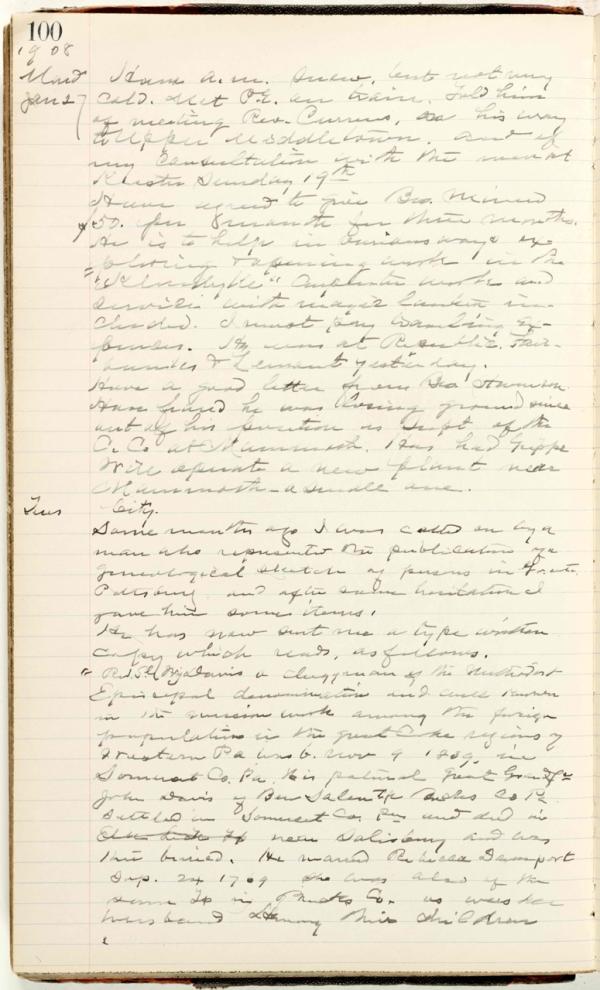 100
1908
Mond Home a.m. Snow, but not very
Jan 27 cold. Met P.E. on train. Told him
of meeting Rev. Currens, on his way
to Upper Middletown. and of
my consultation with the men at
Keister Sunday 19th
Have agreed to give Bro.
50. per month for three months.
He is to help in various ways ex-
ploring & opening work in the
"Klondyke" work and
services with lantern in-
cluded. I must pay traveling ex-
penses. He was at Republic, Fair-
banks & Lemont yesterday.
Have a good letter from Bro Harrison
Have feared he was losing ground since
out of his position as Supt of the
C. Co at Mammoth. Has had Grippe
Will operate a new plant near
Mammoth - a small one.
Tues City.
Some months ago I was called on by a
man who represented the publication of a
geneological sketch of persons in Greater
Pittsburg and after some hesitation I
gave him some items.
He has now sent me a type written
copy which reads, as follows.
" Davis a clergyman of the Methodist
Episcopal denomination and well known
in the mission work among the foreign
population in the great Coke regions of
Western Pa was b. Nov 9 1839, in
Somerset Co. Pa. His paternal great Grandfr
John Davis of Ben Salem Tp Bucks Co Pa
Settled in Somerset Co. Pa and died in
near Salisbury and was
there buried. He married Rebecca Davenport
Sep. 24 1769 she was also of the
same Tp in Bucks Co. as was her
husband Among their children